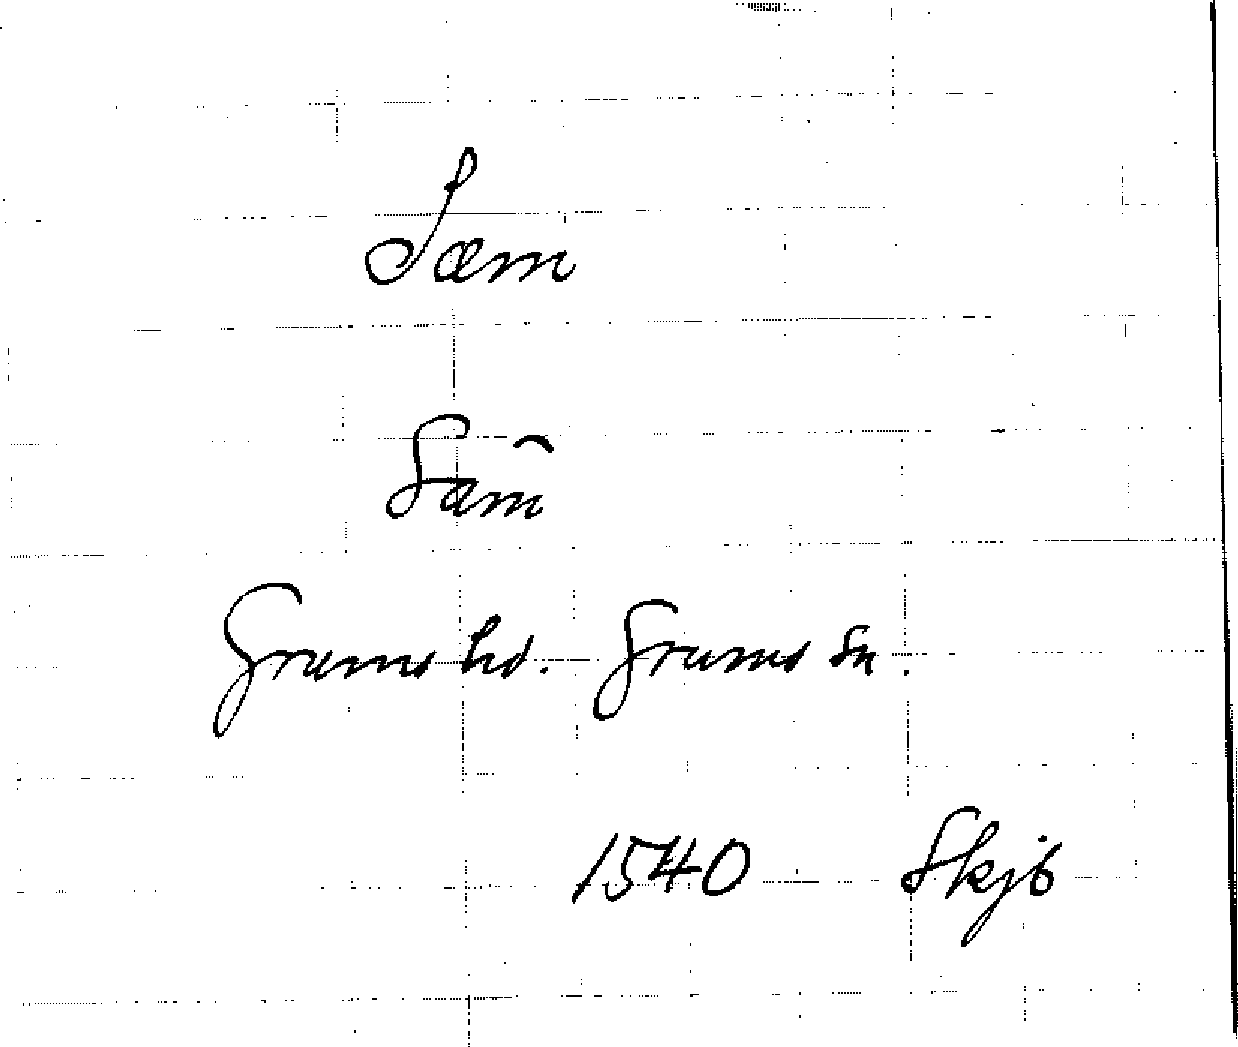 Sæm
Sam̄
Grums hd. Grums sn.
1540 Skjb